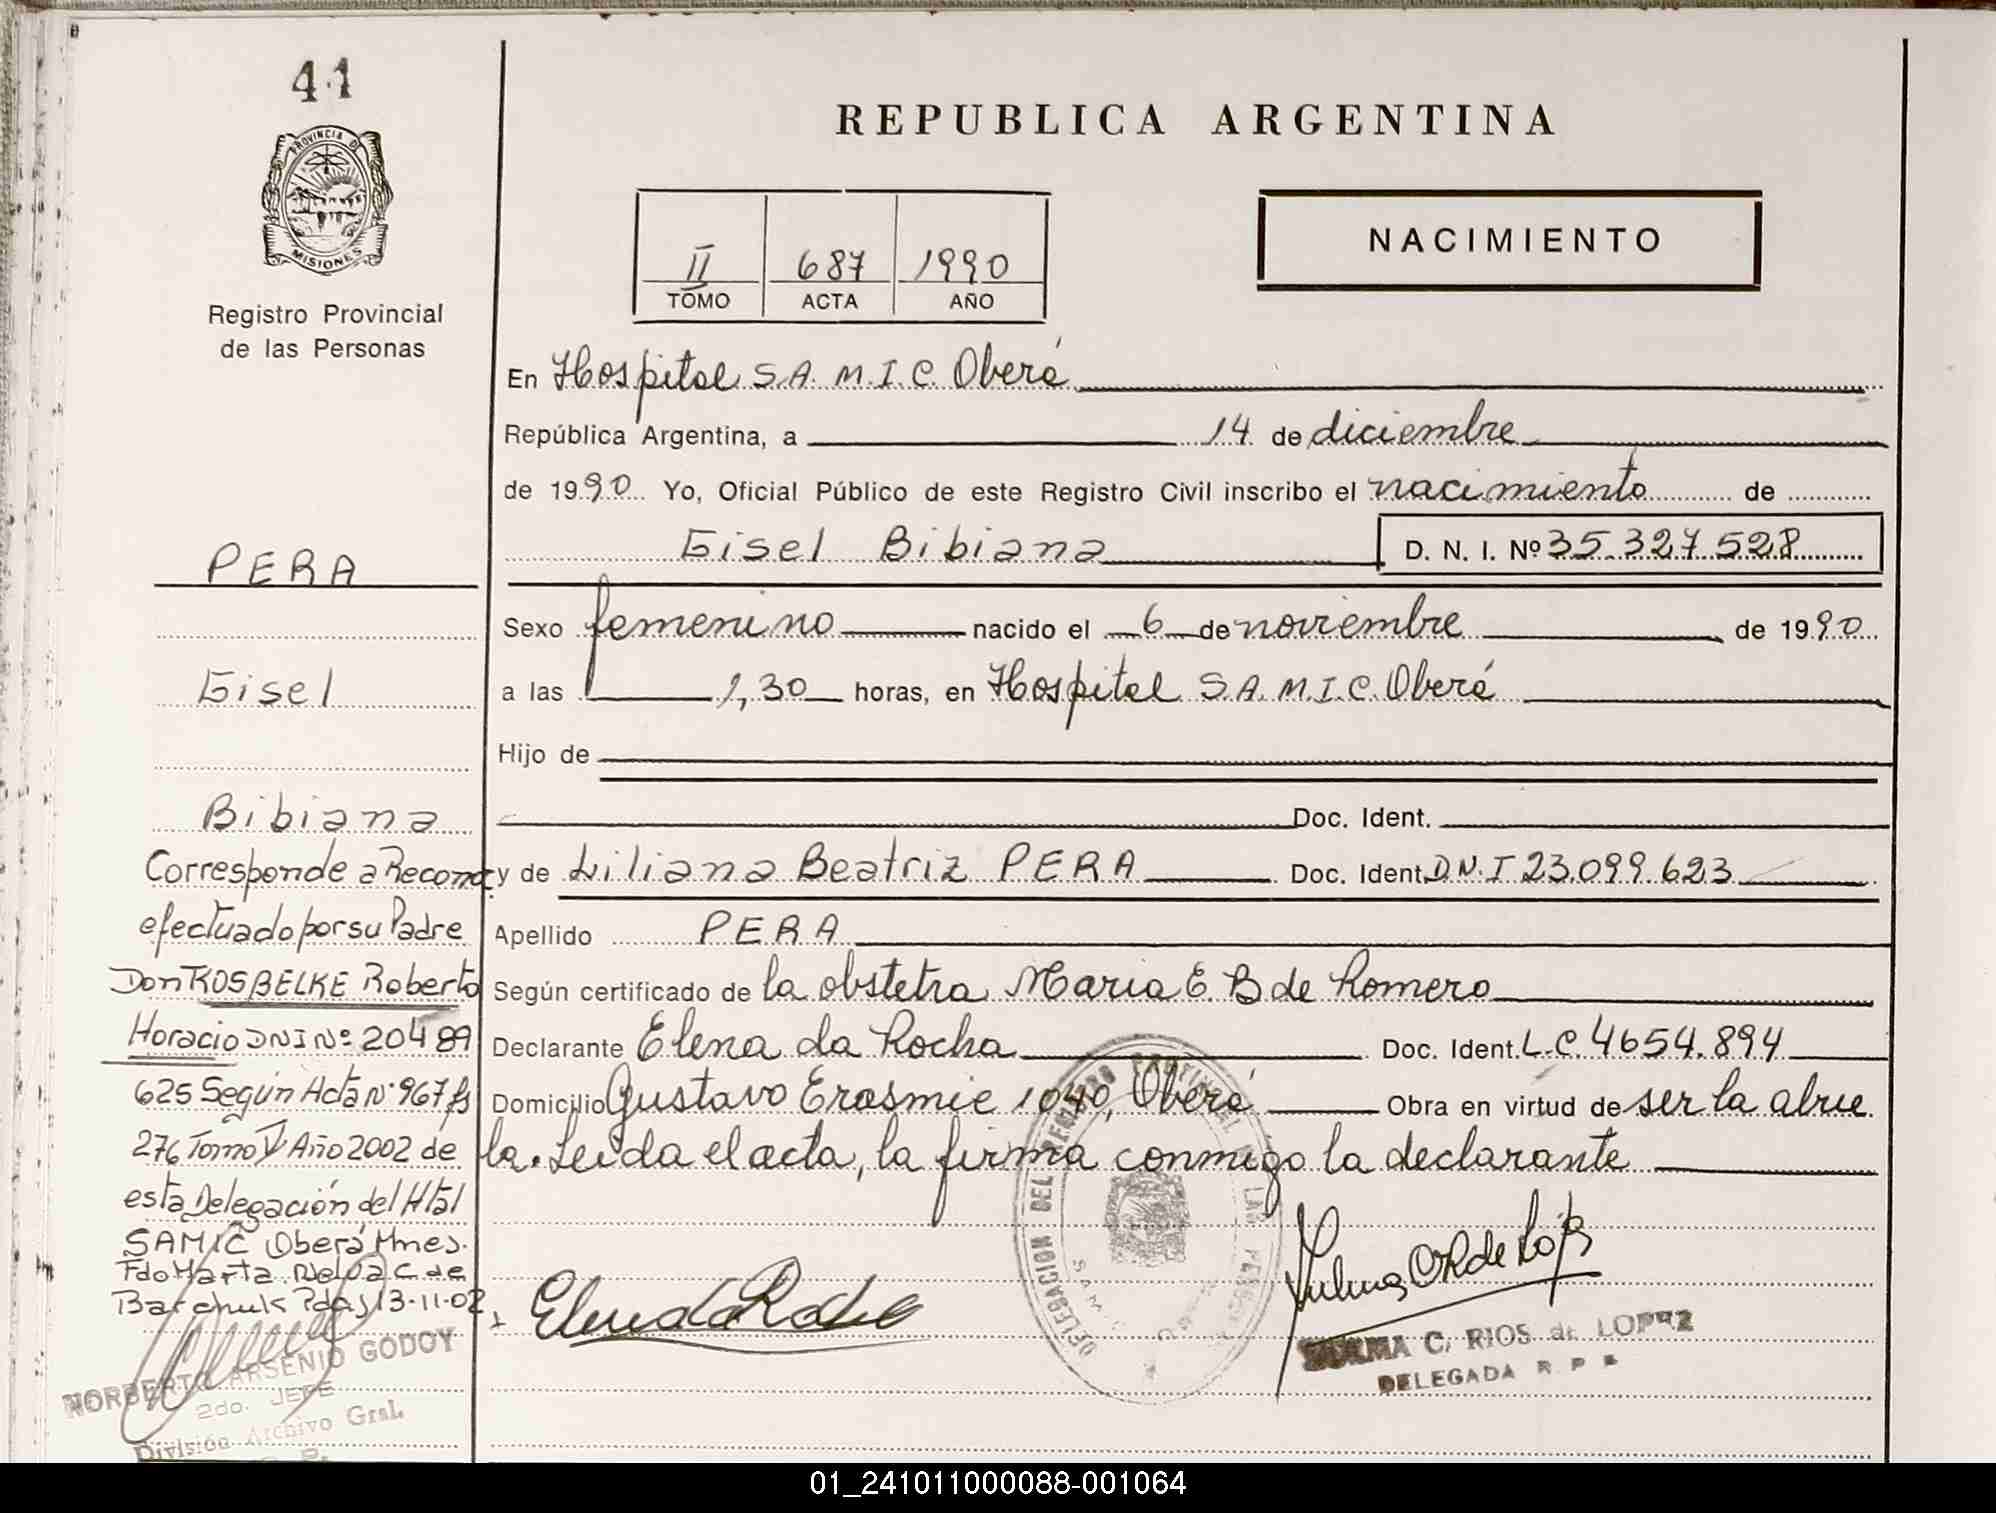 41
REPUBLICA ARGENTINA
PROVINCIA DE
MISIONES
Registro Provincial
de las Personas
II 687 1990
TOMO ACTA AÑO
NACIMIENTO
En Hospital S.A.M.I.C. Oberá
República Argentina, a 14 de diciembre
de 1990 Yo, Oficial Público de este Registro Civil inscribo el nacimiento de
Gisel Bibiana D. N. I. Nº 35.327.528
Sexo femenino nacido el 6 de noviembre de 1990
a las 1,30 horas, en Hospital S.A.M.I.C. Oberá
Hijo de
Doc. Ident.
y de Liliana Beatriz PERA Doc. Ident. D.N.I 23.099.623
Apellido PERA
Según certificado de la obstetra Maria E. B de Romero
Declarante Elena da Rocha Doc. Ident. L.C. 4654.894
Domicilio Gustavo Erasmie 1040, Oberá Obra en virtud de ser la abue
la. Leida el acta, la firma conmigo la declarante
PERA
Gisel
Bibiana
Corresponde a Reconoc
efectuado por su Padre
Don KOSBELKE Roberto
Horacio DNI Nº 20489
625 Según Acta Nº 967 fs
276 Tomo V Año 2002 de
esta Delegación del Htal
SAMIC Oberá Mnes.
Fdo Marta Nelva C de
Barchuk Pdas 13-11-02
NORBERTO ARSENIO GODOY
2do. JEFE
División Archivo Gral.
Elena da Rocha
DELEGACION DEL REGISTRO PROVINCIAL DE LAS PERSONAS
ZULMA C. RIOS de LOPEZ
DELEGADA R. P. P.
01_241011000088-001064